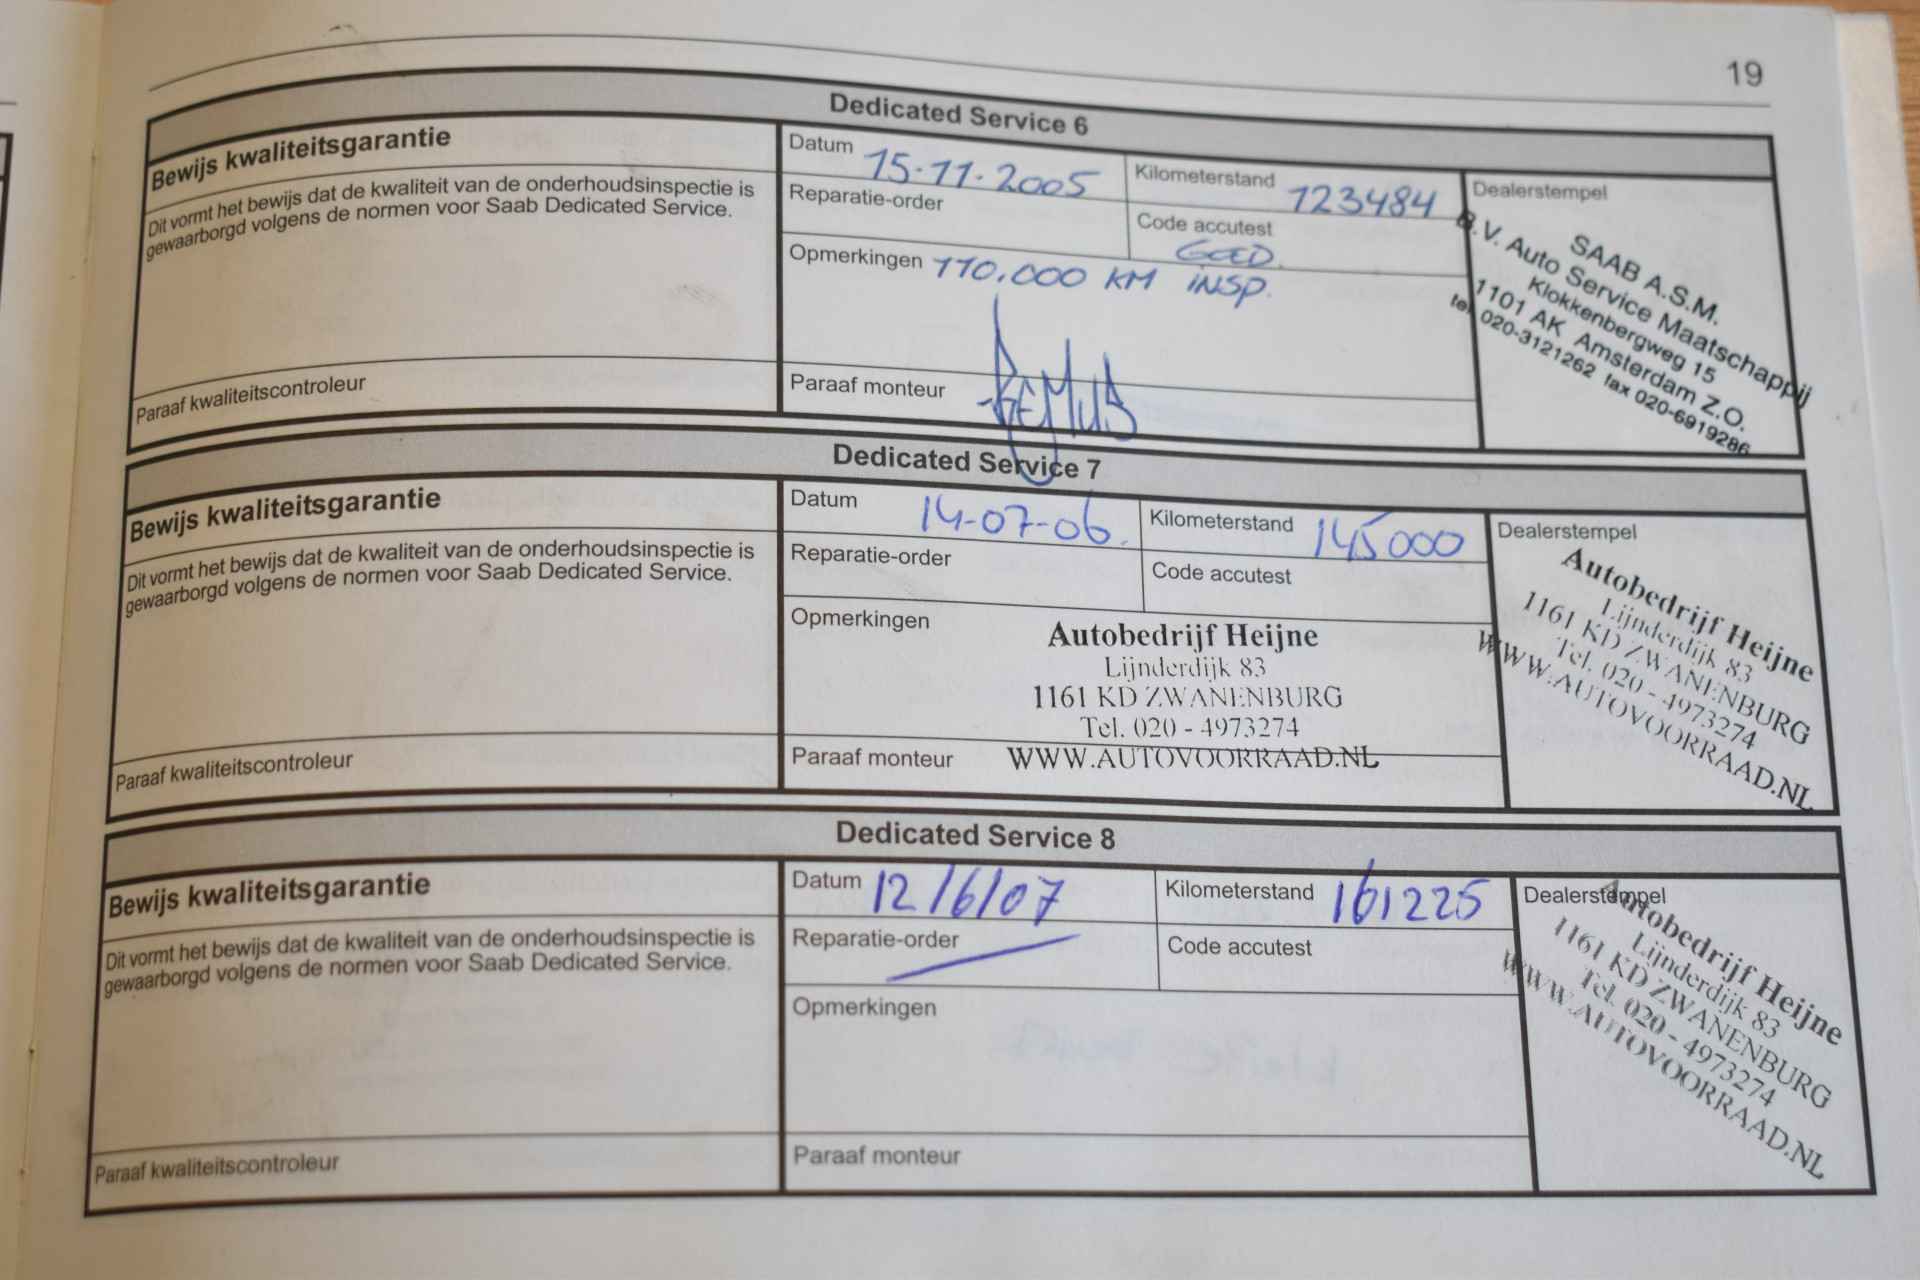 19
Dedicated Service 6
Bewijs kwaliteitsgarantie
Dit vormt het bewijs dat de kwaliteit van de onderhoudsinspectie is
gewaarborgd volgens de normen voor Saab Dedicated Service.
Paraaf kwaliteitscontroleur
Datum 15-11-2005
Kilometerstand 123484
Reparatie-order
Code accutest
GOED.
Opmerkingen 110.000 KM INSP.
Paraaf monteur
Dealerstempel
SAAB A.S.M.
B.V. Auto Service Maatschappij
Klokkenbergweg 15
1101 AK Amsterdam Z.O.
tel. 020-3121262 fax 020-6919286
Dedicated Service 7
Bewijs kwaliteitsgarantie
Dit vormt het bewijs dat de kwaliteit van de onderhoudsinspectie is
gewaarborgd volgens de normen voor Saab Dedicated Service.
Paraaf kwaliteitscontroleur
Datum 14-07-06.
Kilometerstand 145000
Reparatie-order
Code accutest
Opmerkingen
Autobedrijf Heijne
Lijnderdijk 83
1161 KD ZWANENBURG
Tel. 020 - 4973274
Paraaf monteur WWW.AUTOVOORRAAD.NL
Dealerstempel
Autobedrijf Heijne
Lijnderdijk 83
1161 KD ZWANENBURG
Tel. 020 - 4973274
WWW.AUTOVOORRAAD.NL
Dedicated Service 8
Bewijs kwaliteitsgarantie
Dit vormt het bewijs dat de kwaliteit van de onderhoudsinspectie is
gewaarborgd volgens de normen voor Saab Dedicated Service.
Paraaf kwaliteitscontroleur
Datum 12/6/07
Kilometerstand 161225
Reparatie-order
Code accutest
Opmerkingen
Paraaf monteur
Dealerstempel
Autobedrijf Heijne
Lijnderdijk 83
1161 KD ZWANENBURG
Tel. 020 - 4973274
WWW.AUTOVOORRAAD.NL